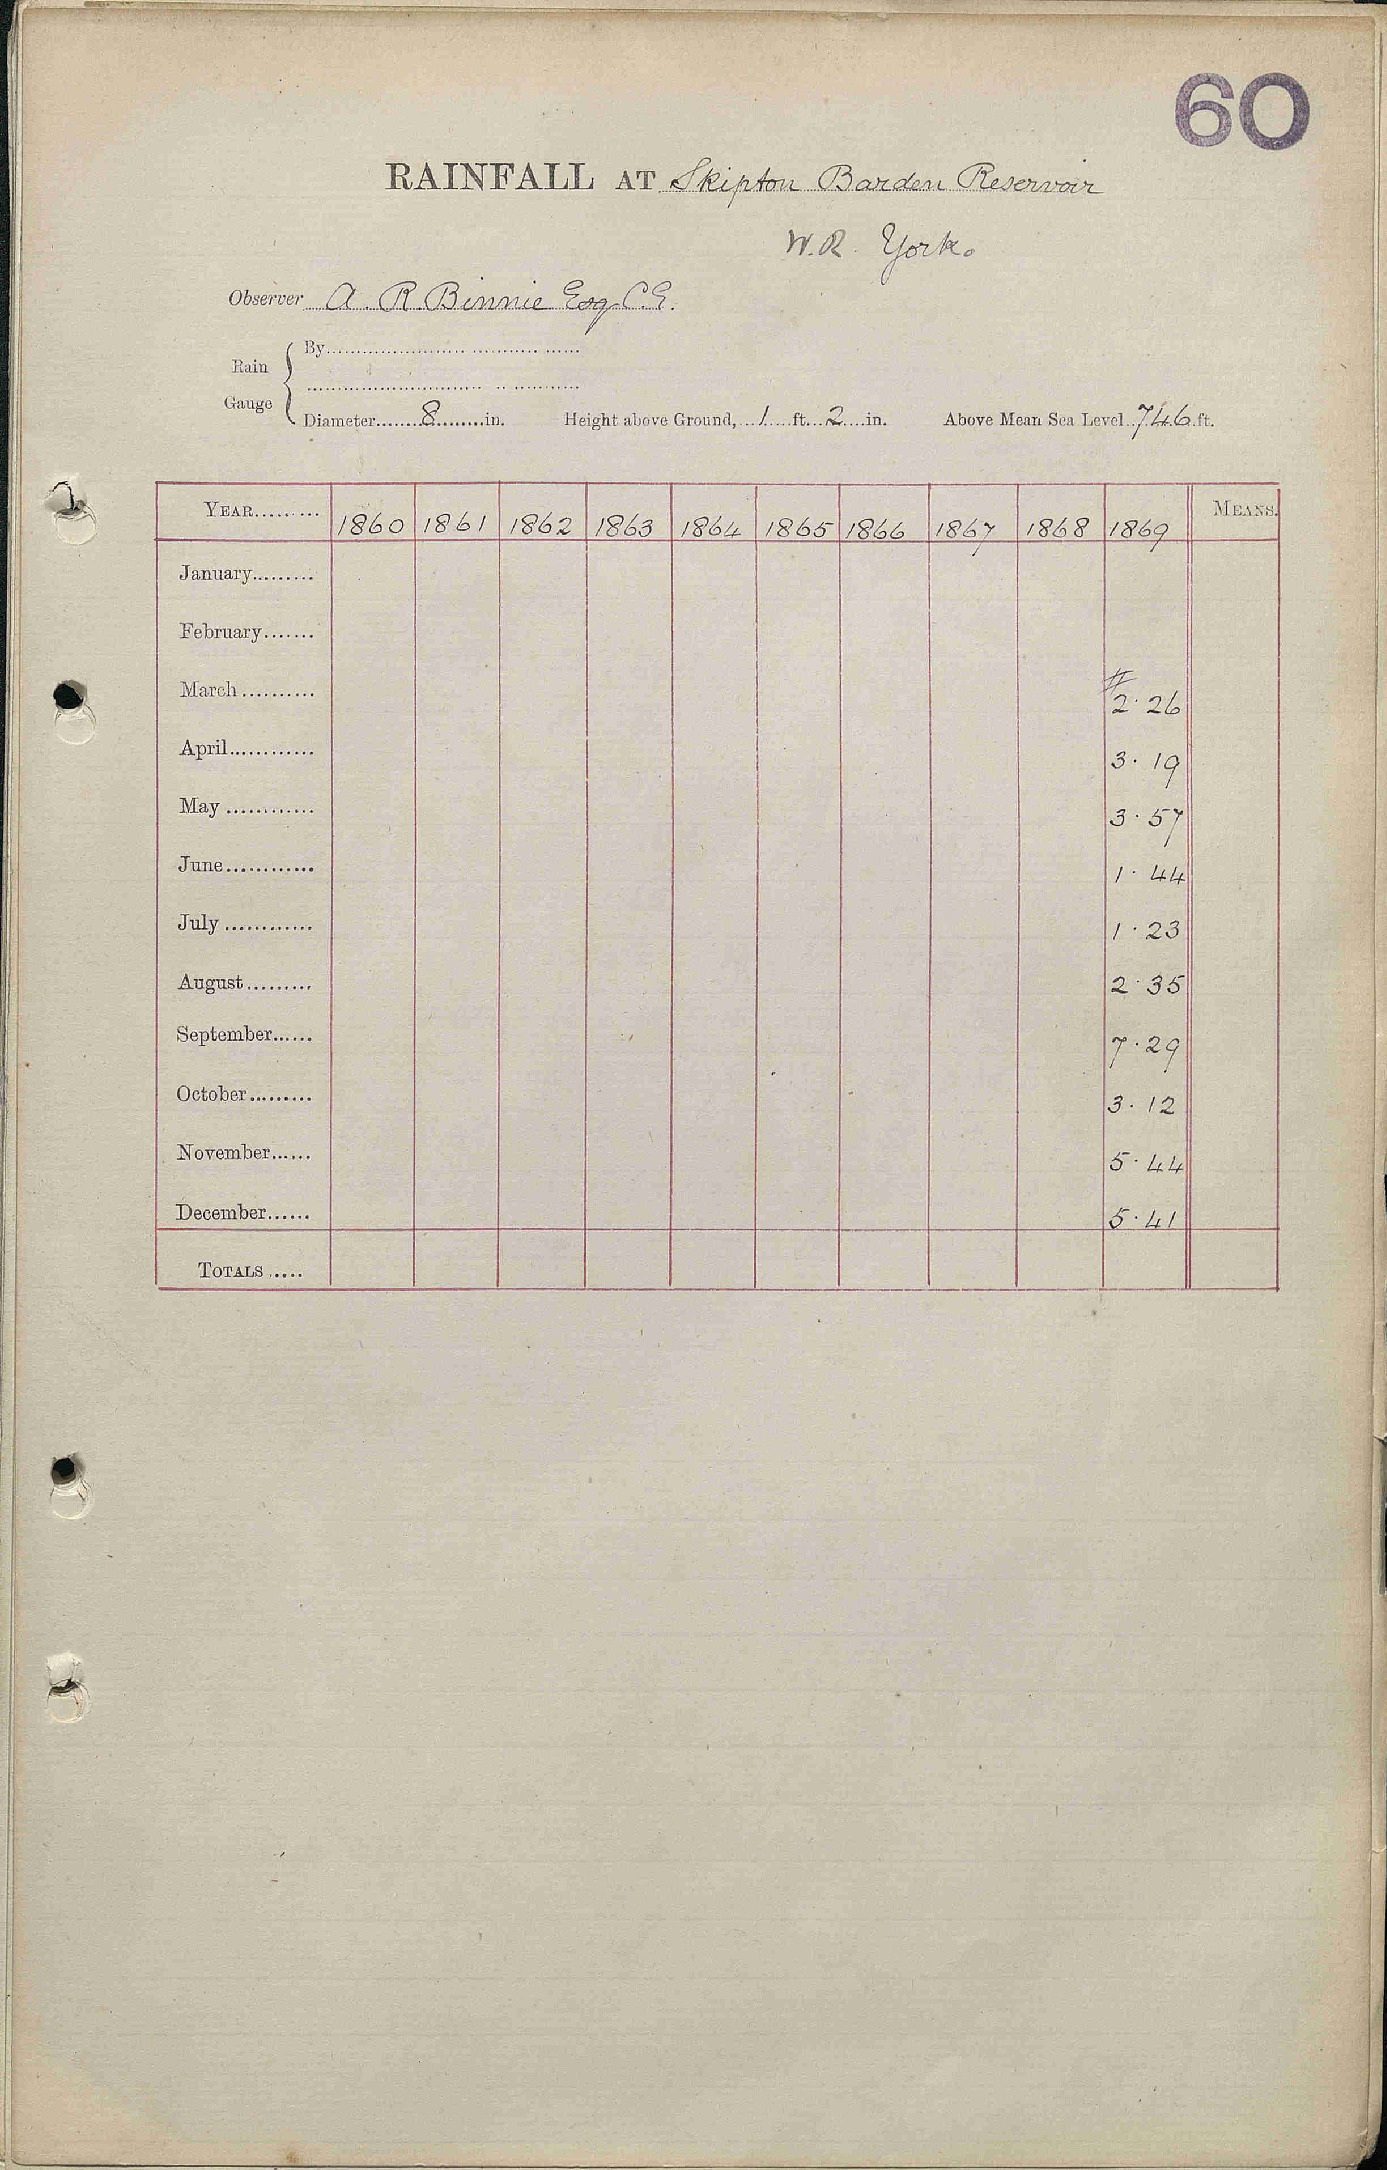 60
RAINFALL AT Skipton Barden Reservoir
W.R. York.
Observer A. R. Binnie Esq C.E.
Rain Gauge
By
Diameter 8 in. Height above Ground, 1 ft. 2 in. Above Mean Sea Level 746 ft.
YEAR 1860 1861 1862 1863 1864 1865 1866 1867 1868 1869 MEANS.
January
February
March # 2.26
April 3.19
May 3.57
June 1.44
July 1.23
August 2.35
September 7.29
October 3.12
November 5.44
December 5.41
TOTALS